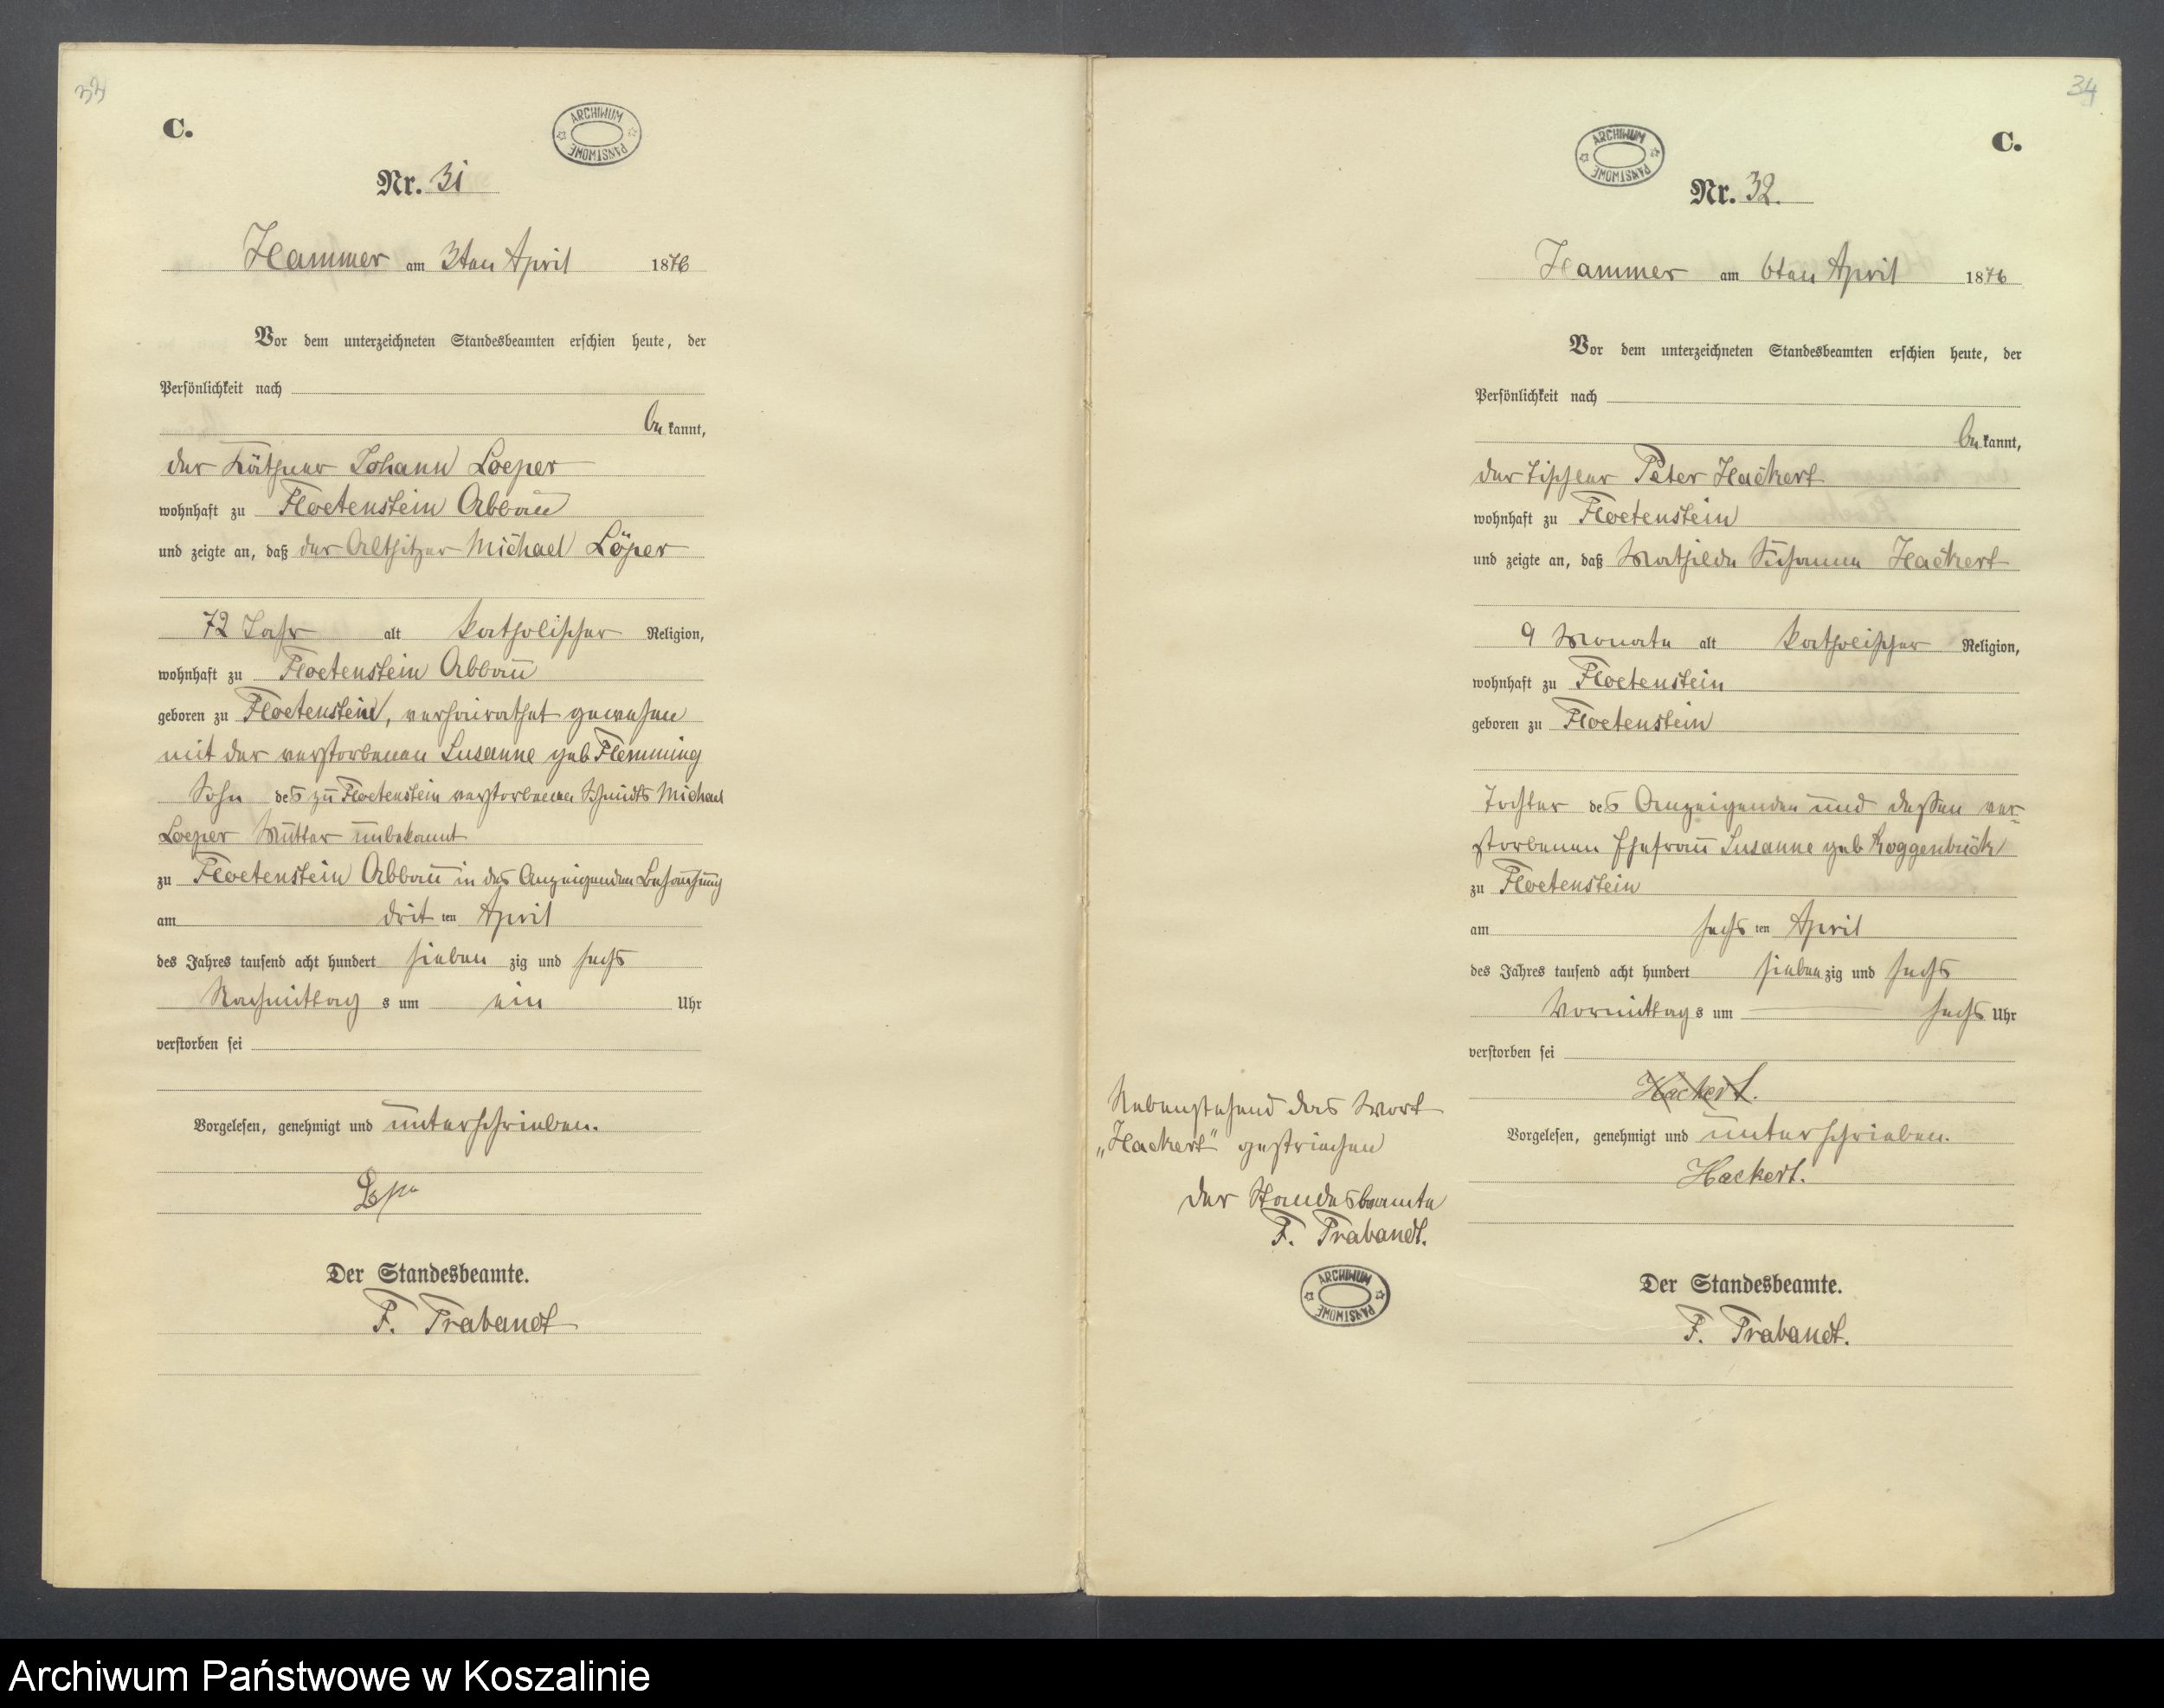 33
C.
ARCHIWUM PAŃSTWOWE
Nr. 31
Hammer am 3ten April 1876
Vor dem unterzeichneten Standesbeamten erschien heute, der
Persönlichkeit nach
be kannt,
der Käthner Johann Loeper
wohnhaft zu Floetenstein Abbau
und zeigte an, daß der Altsitzer Michael Löper
72 Jahr alt katholischer Religion,
wohnhaft zu Floetenstein Abbau
geboren zu Floetenstein, verheirathet gewesen
mit der verstorbenen Susanne geb Flemming
Sohn des zu Floetenstein verstorbenen Schmidts Michael
Loeper Mutter unbekannt
zu Floetenstein Abbau in des Anzeigenden Behausung
am drit ten April
des Jahres tausend acht hundert sieben zig und sechs
Nachmittag s um ein Uhr
verstorben sei
Vorgelesen, genehmigt und unterschrieben.
Der Standesbeamte.
F. Trabandt
34
C.
ARCHIWUM PAŃSTWOWE
Nr. 32.
Hammer am 6ten April 1876
Vor dem unterzeichneten Standesbeamten erschien heute, der
Persönlichkeit nach
be kannt,
der Tischler Peter Hackert
wohnhaft zu Floetenstein
und zeigte an, daß Mathilde Hackert
9 Monate alt katholischer Religion,
wohnhaft zu Floetenstein
geboren zu Floetenstein
Tochter des Anzeigenden und dessen ver-
storbenen Ehefrau Susanne geb Roggenbuck
zu Floetenstein
am sechs ten April
des Jahres tausend acht hundert sieben zig und sechs
Vormittag s um sechs Uhr
verstorben sei
Hackert.
Vorgelesen, genehmigt und unterschrieben.
Hackert.
Der Standesbeamte.
F. Trabandt.
Nebenstehend das Wort
„Hackert" gestrichen
Der Standesbeamte
F. Trabandt.
ARCHIWUM PAŃSTWOWE
Archiwum Państwowe w Koszalinie